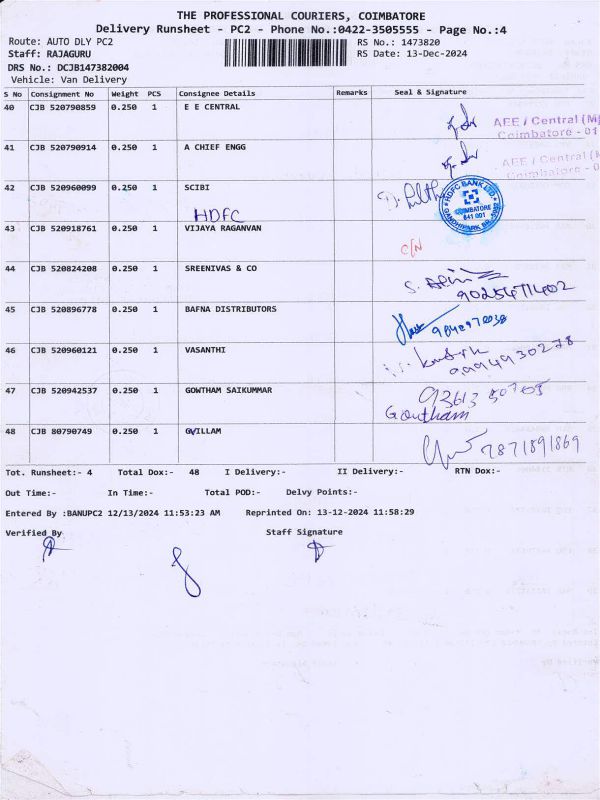 THE PROFESSIONAL COURIERS, COIMBATORE
Delivery Runsheet - PC2 - Phone No.:0422-3505555 - Page No.:4
Route: AUTO DLY PC2 RS No.: 1473820
Staff: RAJAGURU RS Date: 13-Dec-2024
DRS No.: DCJB147382004
Vehicle: Van Delivery
S No Consignment No Weight PCS Consignee Details Remarks Seal & Signature
40 CJB 520790859 0.250 1 E E CENTRAL
AEE / Central (M
Coimbatore - 01
41 CJB 520790914 0.250 1 A CHIEF ENGG
AEE / Central (
Coimbatore - 0
42 CJB 520960099 0.250 1 SCIBI
HDFC BANK LTD
COIMBATORE
641 001
HDFC
43 CJB 520918761 0.250 1 VIJAYA RAGANVAN
C/N
44 CJB 520824208 0.250 1 SREENIVAS & CO
45 CJB 520896778 0.250 1 BAFNA DISTRIBUTORS
46 CJB 520960121 0.250 1 VASANTHI
9994930278
47 CJB 520942537 0.250 1 GOWTHAM SAIKUMMAR
Goutham
48 CJB 80790749 0.250 1 GVILLAM
7871891869
Tot. Runsheet:- 4 Total Dox:- 48 I Delivery:- II Delivery:- RTN Dox:-
Out Time:- In Time:- Total POD:- Delvy Points:-
Entered By :BANUPC2 12/13/2024 11:53:23 AM Reprinted On: 13-12-2024 11:58:29
Verified By Staff Signature